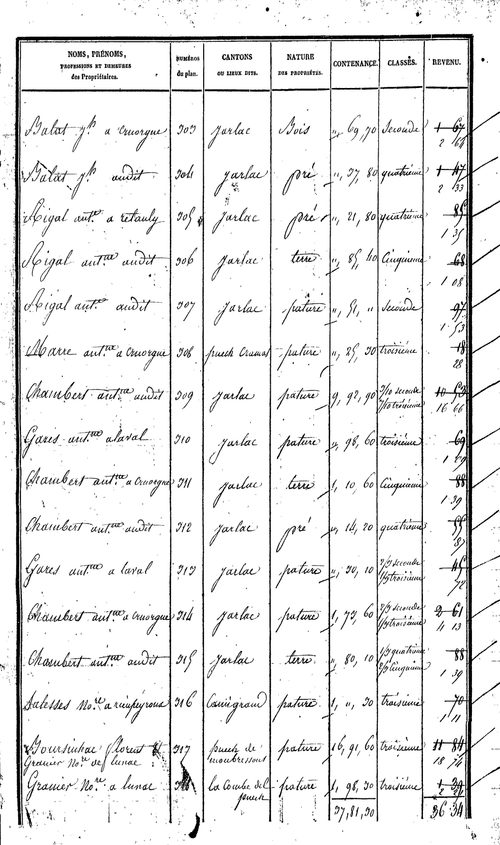 NOMS, PRÉNOMS, PROFESSIONS ET DEMEURES des Propriétaires. NUMÉROS du plan. CANTONS OU LIEUX DITS. NATURE DES PROPRIÉTÉS. CONTENANCE. CLASSES. REVENU.
Balat jh a Cruorgue 303 Jarlac Bois ,, 69, 70 Seconde 1 67
2 68
Balat jh audit 304 Jarlac pré ,, 37, 80 quatrième 1 47
2 33
Rigal ant.ne a retauly 305 Jarlac pré ,, 21, 80 quatrième 85
1 35
Rigal antne audit 306 Jarlac terre ,, 85, 40 Cinquième 68
1 08
Rigal ant.ne audit 307 Jarlac pature ,, 51, ,, Seconde 97
1 53
Marre antne a Cruorgue 308 puech Cramat pature ,, 25, 30 troisième 18
28
Chambert antne audit 309 Jarlac pature 9, 92, 90 7/10 seconde 10 53
3/10 troisième 16 66
Gares antne a laval 310 Jarlac pature ,, 98, 60 troisième 69
1 09
Chambert antne a Cruorgue 311 Jarlac terre 1, 10, 60 Cinquième 88
1 39
Chambert antne audit 312 Jarlac pré ,, 14, 20 quatrième 55
87
Gares antne a laval 313 Jarlac pature ,, 30, 10 2/3 seconde 45
1/3 troisième 72
Chambert antne a Cruorgue 314 Jarlac pature 1, 73, 60 2/3 seconde 2 61
1/3 troisième 4 13
Chambert antne audit 315 Jarlac terre ,, 80, 10 1/3 quatrième 88
2/3 Cinquième 1 39
Salesses No.re a rieupeyroux 316 Camigrand pature 1, ,, 30 troisième 70
1 11
Boursinhac florent 317 puech de pature 16, 91, 60 troisième 11 84
Granier No.re de Lunac monbressous 18 74
Granier No.re a Lunac 318 la Combe del pature 1, 98, 30 troisième 1 39
puech 2 21
37, 81, 30 36 34